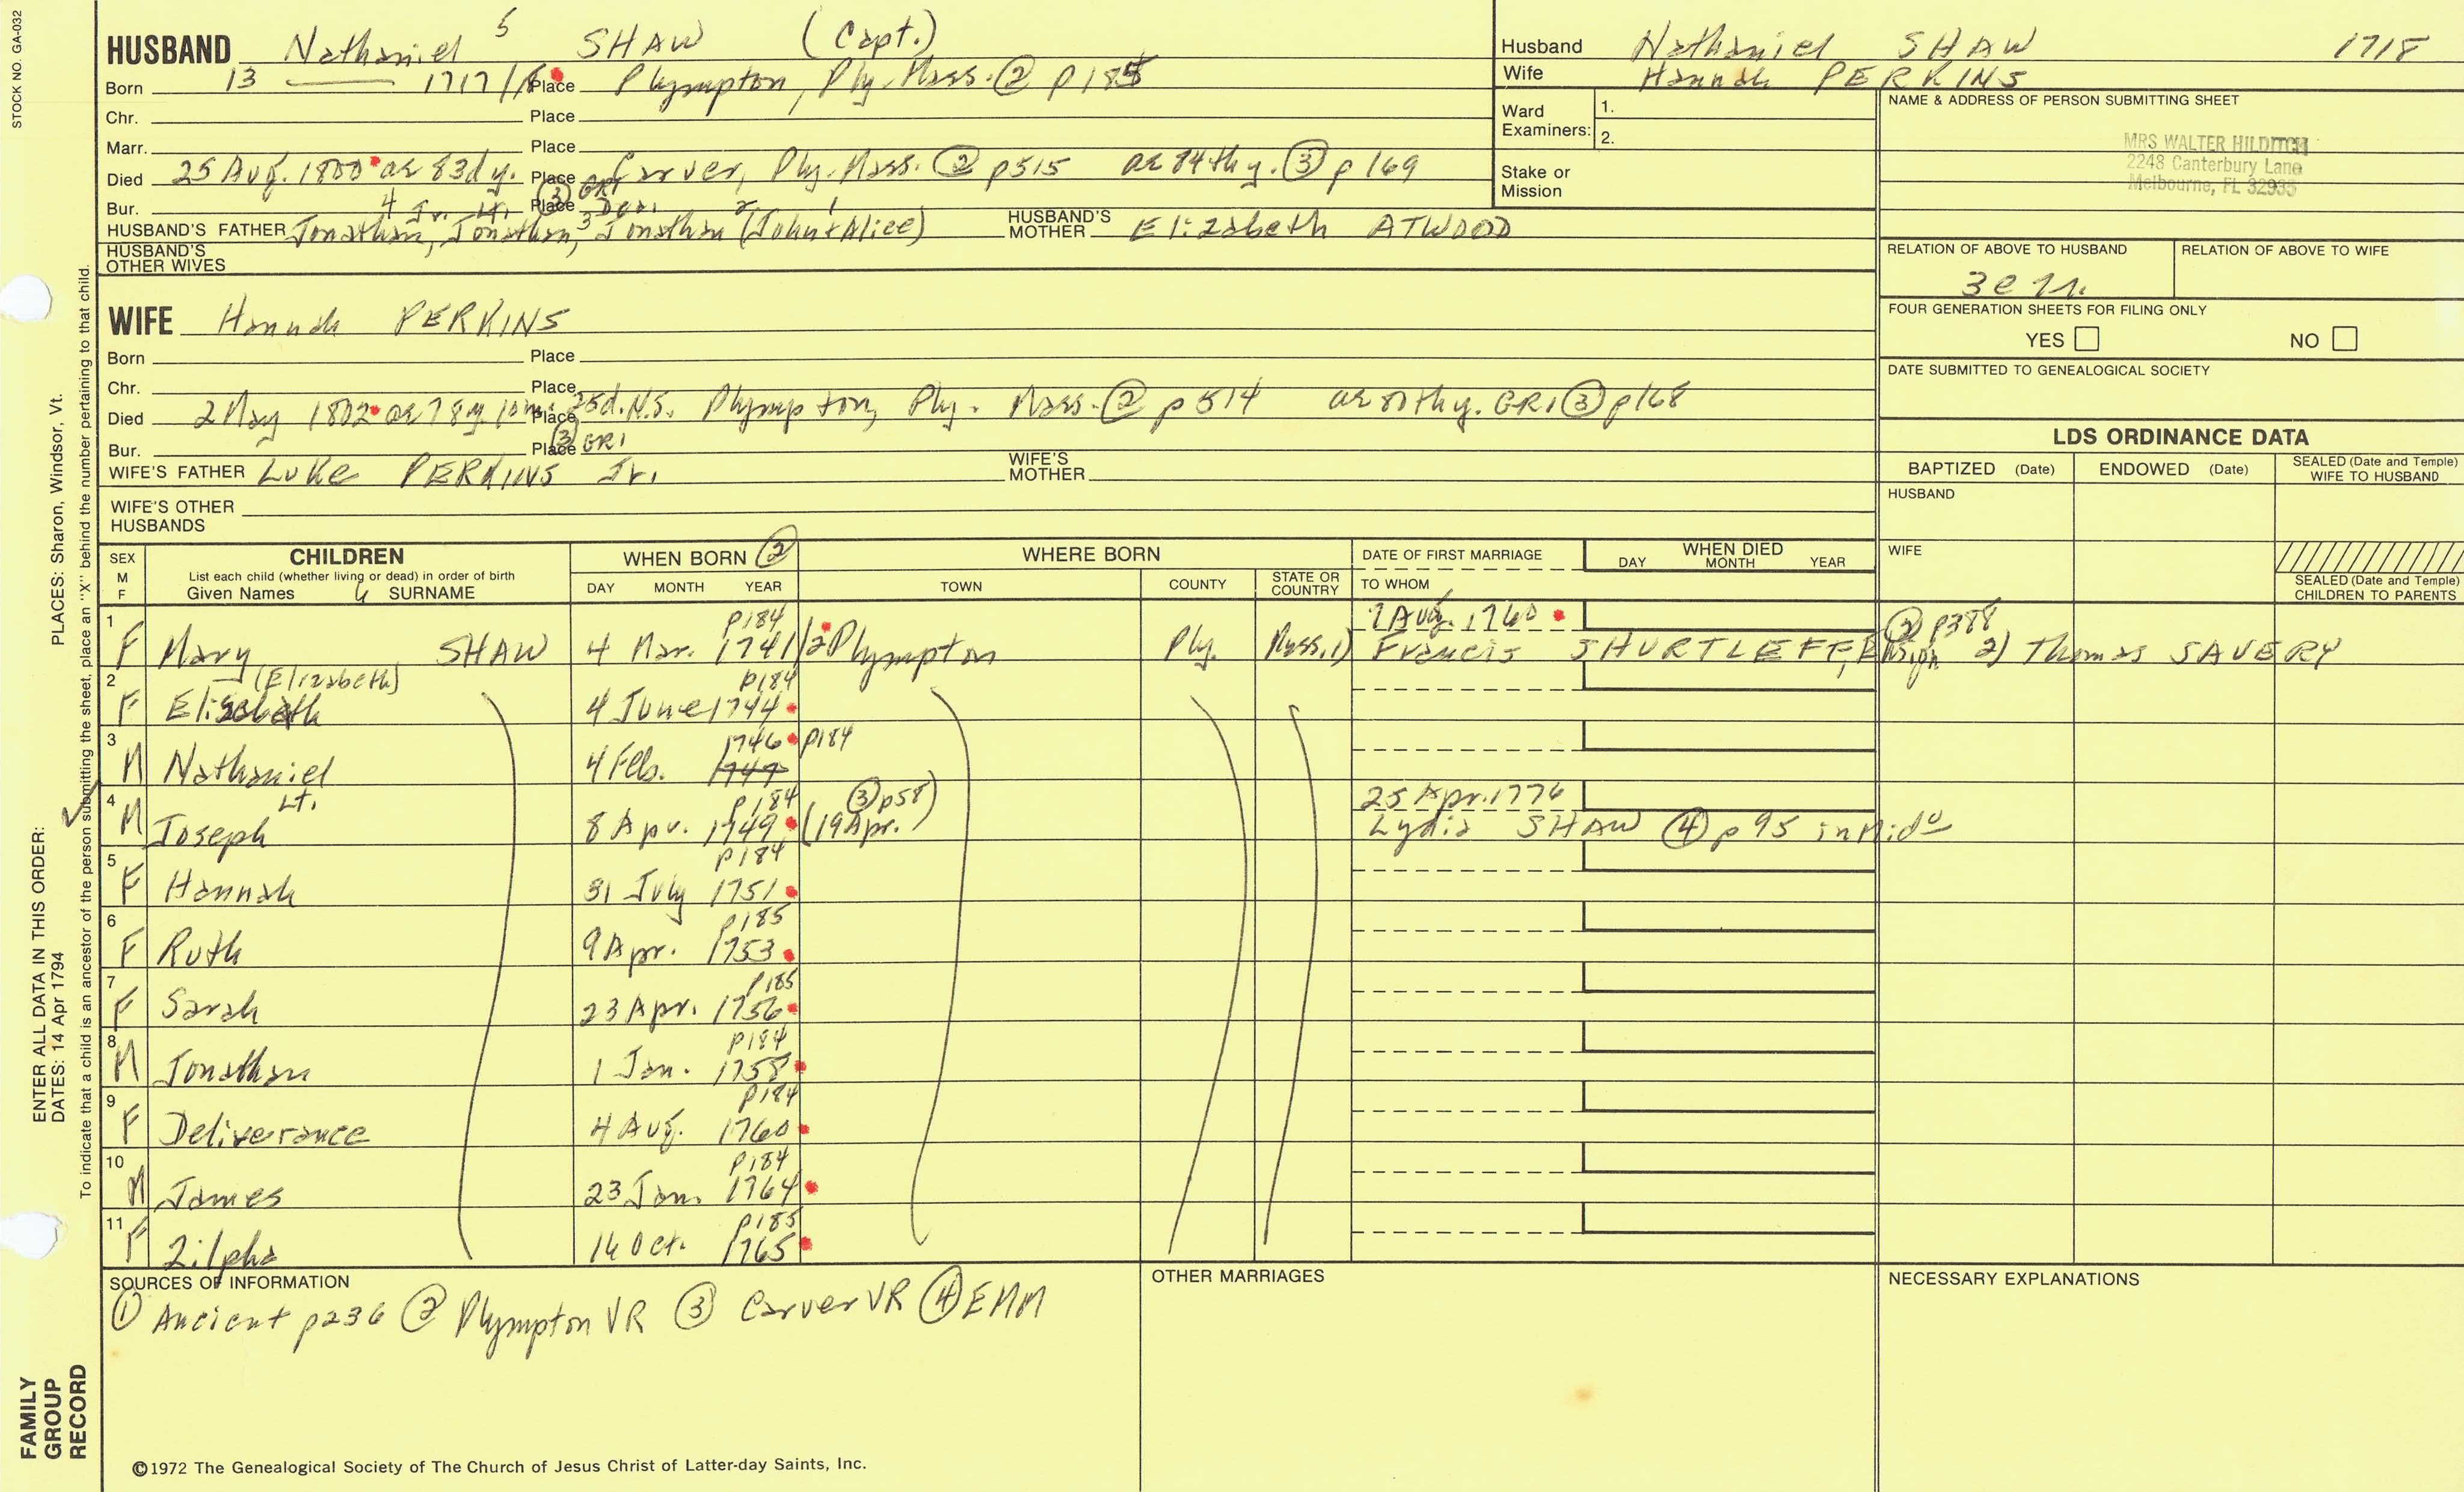 STOCK NO. GA-032
HUSBAND Nathaniel 5 SHAW (Capt.)
Born 13 —— 1717/18 Place Plympton, Ply. Mass. ② p185
Chr. Place
Marr. Place
Died 25 Aug. 1800 ae 83d y. Place Carver, Ply. Mass. ② p515 ae 84th y. ③ p169
Bur. Place ③ GR1
HUSBAND'S FATHER Jonathan, 4 Jr. Jonathan, 3 Jonathan 2 (John 1 + Alice) HUSBAND'S MOTHER Elizabeth ATWOOD
HUSBAND'S OTHER WIVES
WIFE Hannah PERKINS
Born Place
Chr. Place
Died 2 May 1802 ae 78y. 10m. 25d. N.S. Place Plympton, Ply. Mass. ② p514 ae 80thy. GR1 ③ p168
Bur. Place ③ GR1
WIFE'S FATHER Luke PERKINS Jr. WIFE'S MOTHER
WIFE'S OTHER HUSBANDS
Husband Nathaniel SHAW 1718
Wife Hannah PERKINS
Ward Examiners: 1.
2.
Stake or Mission
NAME & ADDRESS OF PERSON SUBMITTING SHEET
MRS WALTER HILDITCH
2248 Canterbury Lane
Melbourne, FL 32935
RELATION OF ABOVE TO HUSBAND RELATION OF ABOVE TO WIFE
FOUR GENERATION SHEETS FOR FILING ONLY
YES NO
DATE SUBMITTED TO GENEALOGICAL SOCIETY
LDS ORDINANCE DATA
BAPTIZED (Date) ENDOWED (Date) SEALED (Date and Temple) WIFE TO HUSBAND
HUSBAND
WIFE
SEALED (Date and Temple) CHILDREN TO PARENTS
SEX M F
CHILDREN
List each child (whether living or dead) in order of birth
Given Names SURNAME
WHEN BORN ②
DAY MONTH YEAR
WHERE BORN
TOWN COUNTY STATE OR COUNTRY
DATE OF FIRST MARRIAGE
TO WHOM
WHEN DIED
DAY MONTH YEAR
1 F Mary SHAW 4 Mar. 1741/2 p184 Plympton Ply. Mass. 7 Aug. 1760 1) Francis SHURTLEFF, Ensign ② p388 2) Thomas SAVERY
2 F Elisabeth (Elizabeth) 4 June 1744 p184
3 M Nathaniel 4 Feb. 1747 1746 p184
4 M Joseph Lt. 8 Apr. 1749 p184 (19 Apr. ③ p58) 25 Apr. 1776 Lydia SHAW ④ p95 in Mido
5 F Hannah 31 July 1751 p184
6 F Ruth 9 Apr. 1753 p185
7 F Sarah 23 Apr. 1756 p185
8 M Jonathan 1 Jan. 1758 p184
9 F Deliverance 4 Aug. 1760 p184
10 M James 23 Jan. 1764 p184
11 F Zilpha 16 Oct. 1765 p185
SOURCES OF INFORMATION
① Ancient p236 ② Plympton VR ③ Carver VR ④ EMM
OTHER MARRIAGES
NECESSARY EXPLANATIONS
©1972 The Genealogical Society of The Church of Jesus Christ of Latter-day Saints, Inc.
FAMILY GROUP RECORD
ENTER ALL DATA IN THIS ORDER:
DATES: 14 Apr 1794
PLACES: Sharon, Windsor, Vt.
To indicate that a child is an ancestor of the person submitting the sheet, place an "X" behind the number pertaining to that child.